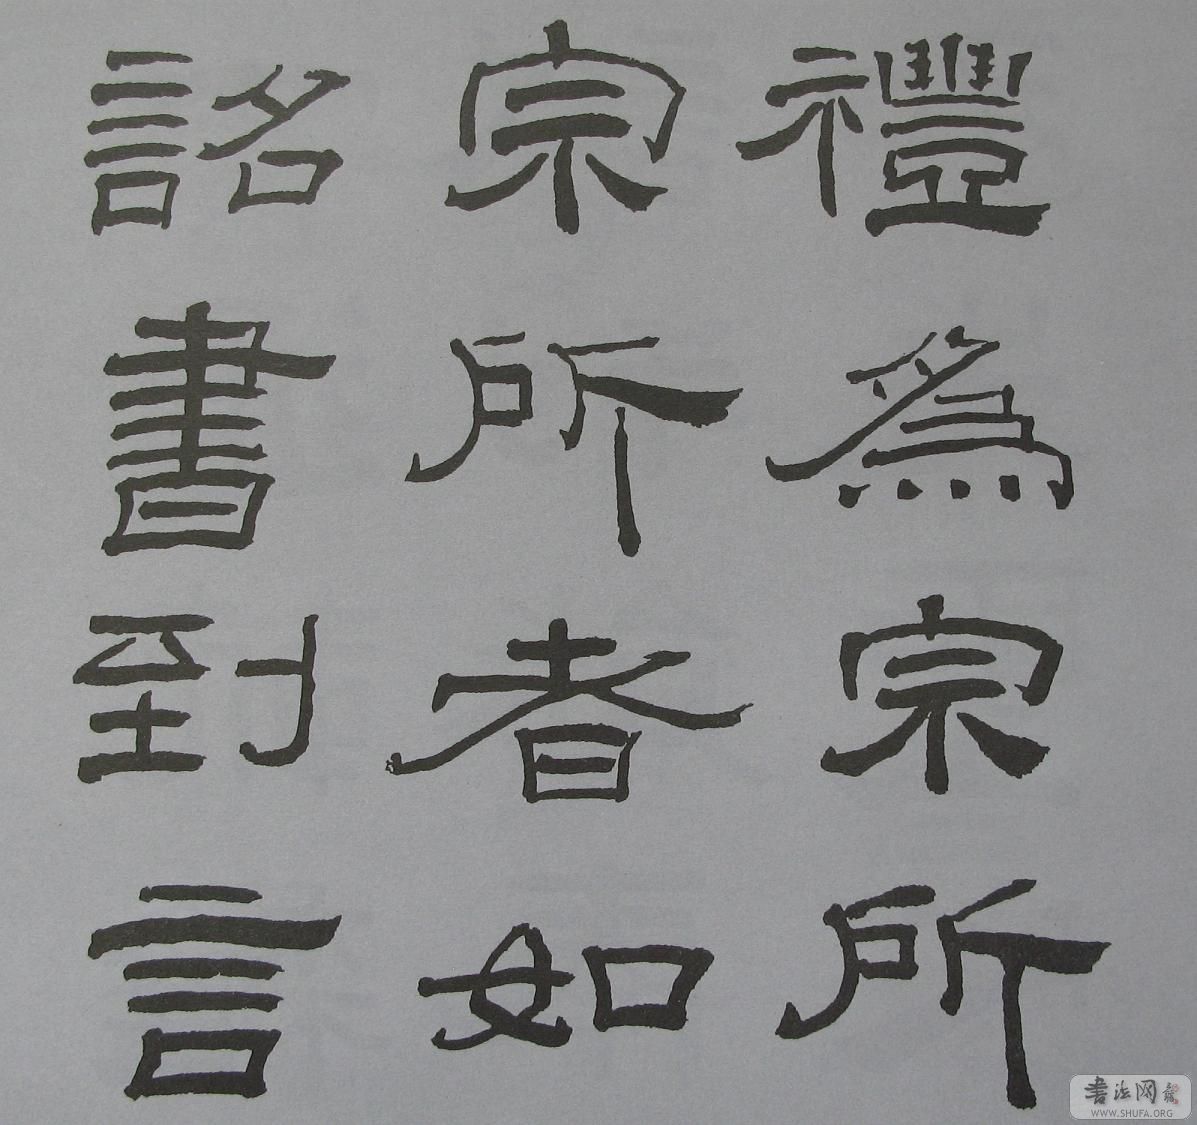 禮為宗所
宗所者如
詔書到言
書法网
WWW.SHUFA.ORG